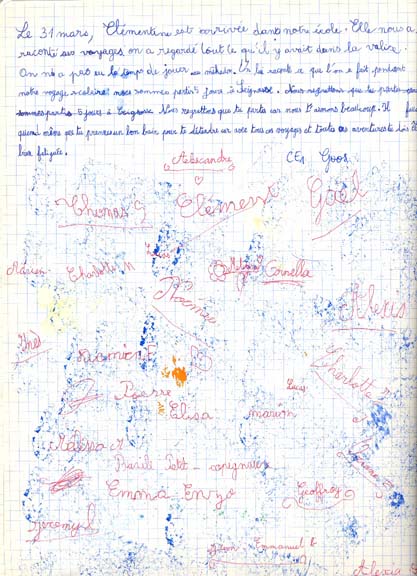 Le 31 mars, Clémentine est arrivée dans notre école. Elle nous a
raconté ses voyages on a regardé tout ce qu'il y avait dans la valise.
On n'a pas eu le temps de jouer au On lui raconte ce que l'on a fait pendant
notre voyage scolaire nous sommes partis 5 jours à Seignosse. Nous regrettons que tu partes
sommes partis 5 jours à Seignosse Nous regrettons que tu partes car nous t'aimons beaucoup. Il
quand même que tu prennes un bon bain pour te détendre car avec tous ces voyages et toutes ces aventures tu dois être
bien fatiguée.
Alexandre CE1 Goos
Thomas G Clément Gaël
Lucas
Adrien Charlotte M Cornella
Noémie
Alexis
Inès
Charlotte
Pierre Lucas
Elisa marion
Basile Petit
Emma Enzo Geoffroy
Jeremy
Emmanuel
Alexia